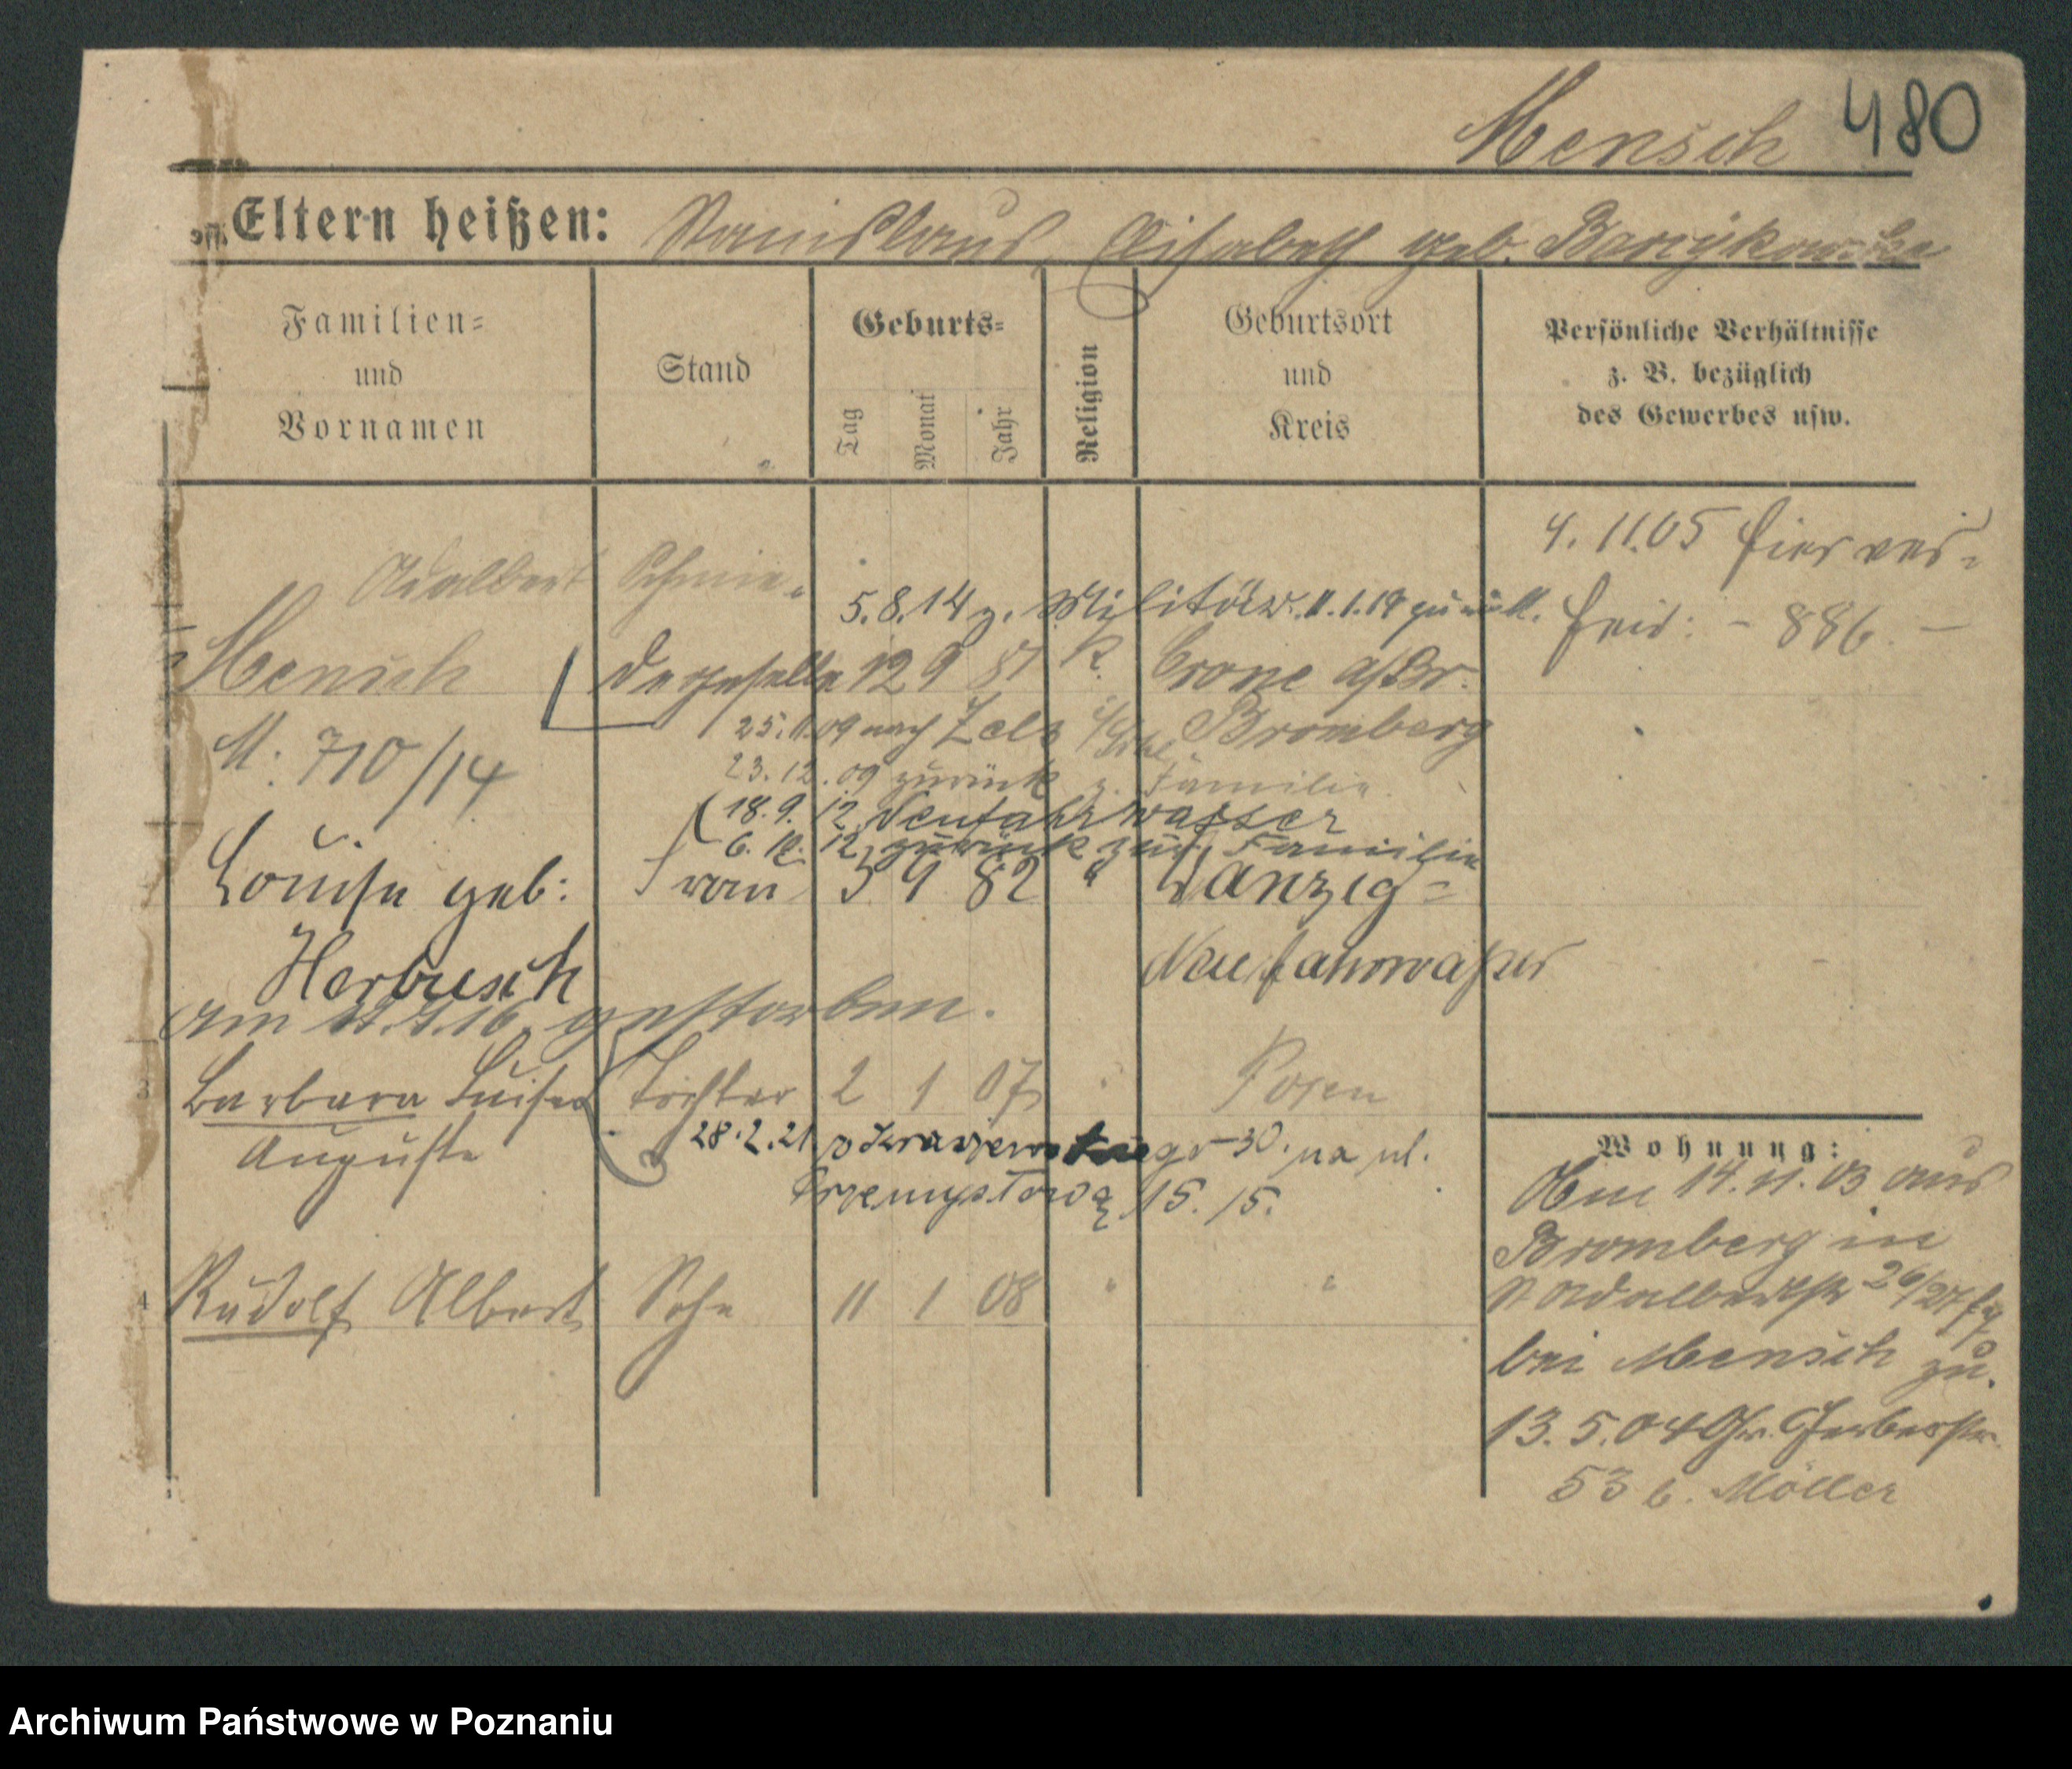 Mensch 480
Eltern heißen: Stanislaus, Elisabeth geb.
Familien=
und
Vornamen
Stand
Geburts=
Tag
Monat
Jahr
Religion
Geburtsort
und
Kreis
Persönliche Verhältnisse
z. B. bezüglich
des Gewerbes usw.
4. 11.05 hier ver=
heir: - 886. -
Adalbert Schmie=
5.8.14 z. Militär. 11.1.18 zurück.
Mensch degeselle 12 9 81 k. Crone a/Br.
Bromberg
25.11.09 nach
M: 710/14
23.12.09 zurück z. Familie.
18.9.12 Neufahrwasser
6. 12. 12 zurück zur Familie
Louise geb: Frau 5 9 82 " Danzig=
Herbusch Neufahrwaßer
am gestorben.
3 Barbara Luise Tochter 2 1 07 " Posen
Auguste
28.2.21 30. na ul.
Przemysłową 15. 15.
4 Rudolf Albert Sohn 11 1 08 " "
Wohnung:
Am 14.11.03 aus
Bromberg in
St Adalbertstr 26/27
bei Mensch zu.
13.5.04 Gr. Gerberstr.
53 b. Möller
Archiwum Państwowe w Poznaniu